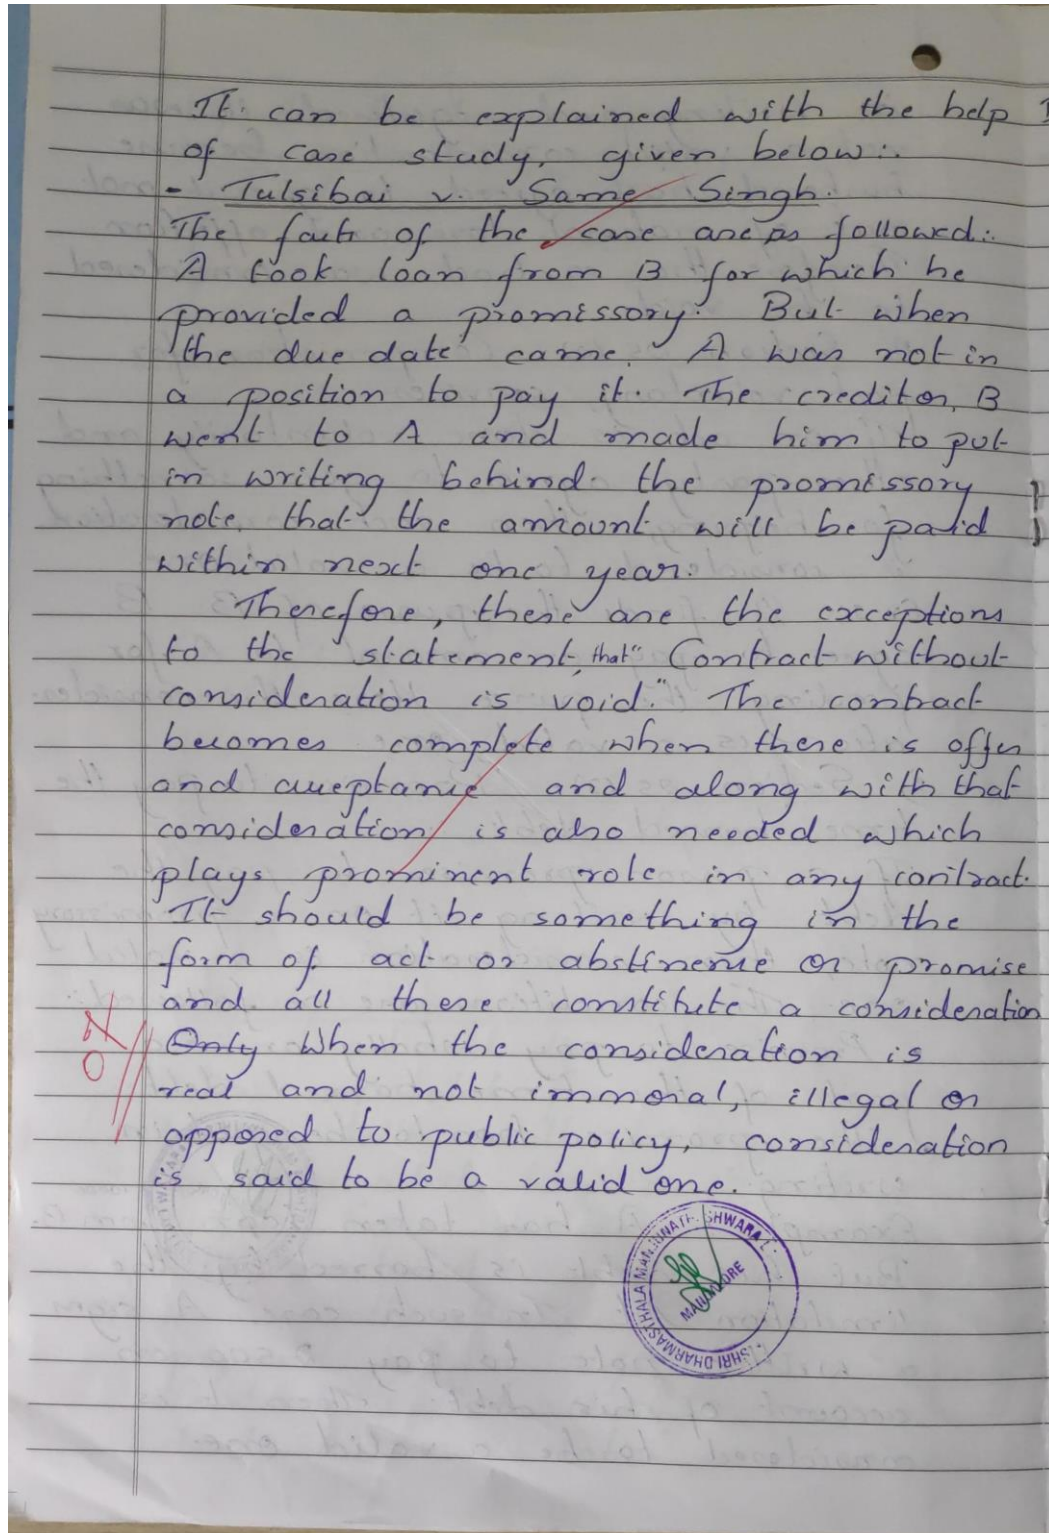 It can be explained with the help
of case study, given below:-
- Tulsibai v. Same Singh.
The facts of the case are as followed:-
A took loan from B for which he
provided a promissory. But when
the due date came, A was not in
a position to pay it. The creditor, B
went to A and made him to put
in writing behind the promissory
note, that the amount will be paid
within next one year.
Therefore, these are the exceptions
to the statement, that "Contract without
consideration is void." The contract
becomes complete when there is offer
and acceptance and along with that
consideration is also needed which
plays prominent role in any contract.
It should be something in the
form of act or abstinence or promise
and all these constitute a consideration
Only When the consideration is
real and not immoral, illegal or
opposed to public policy, consideration
is said to be a valid one.
SHRI DHARMASTHALA
MANGALORE